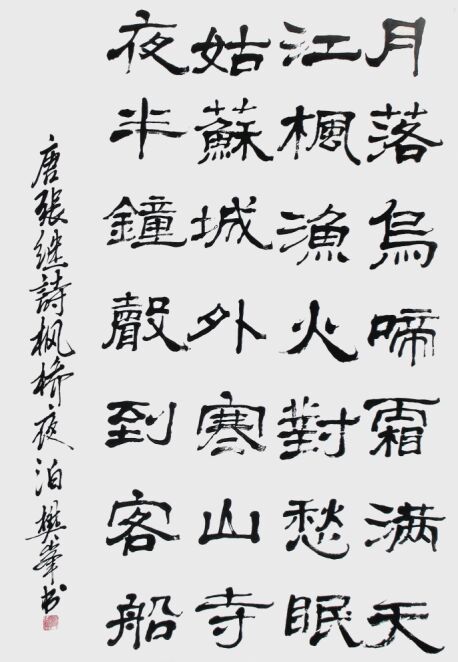 月落烏啼霜满天
江楓漁火對愁眠
姑蘇城外寒山寺
夜半鐘聲到客船
唐張继詩枫桥夜泊樊峯书